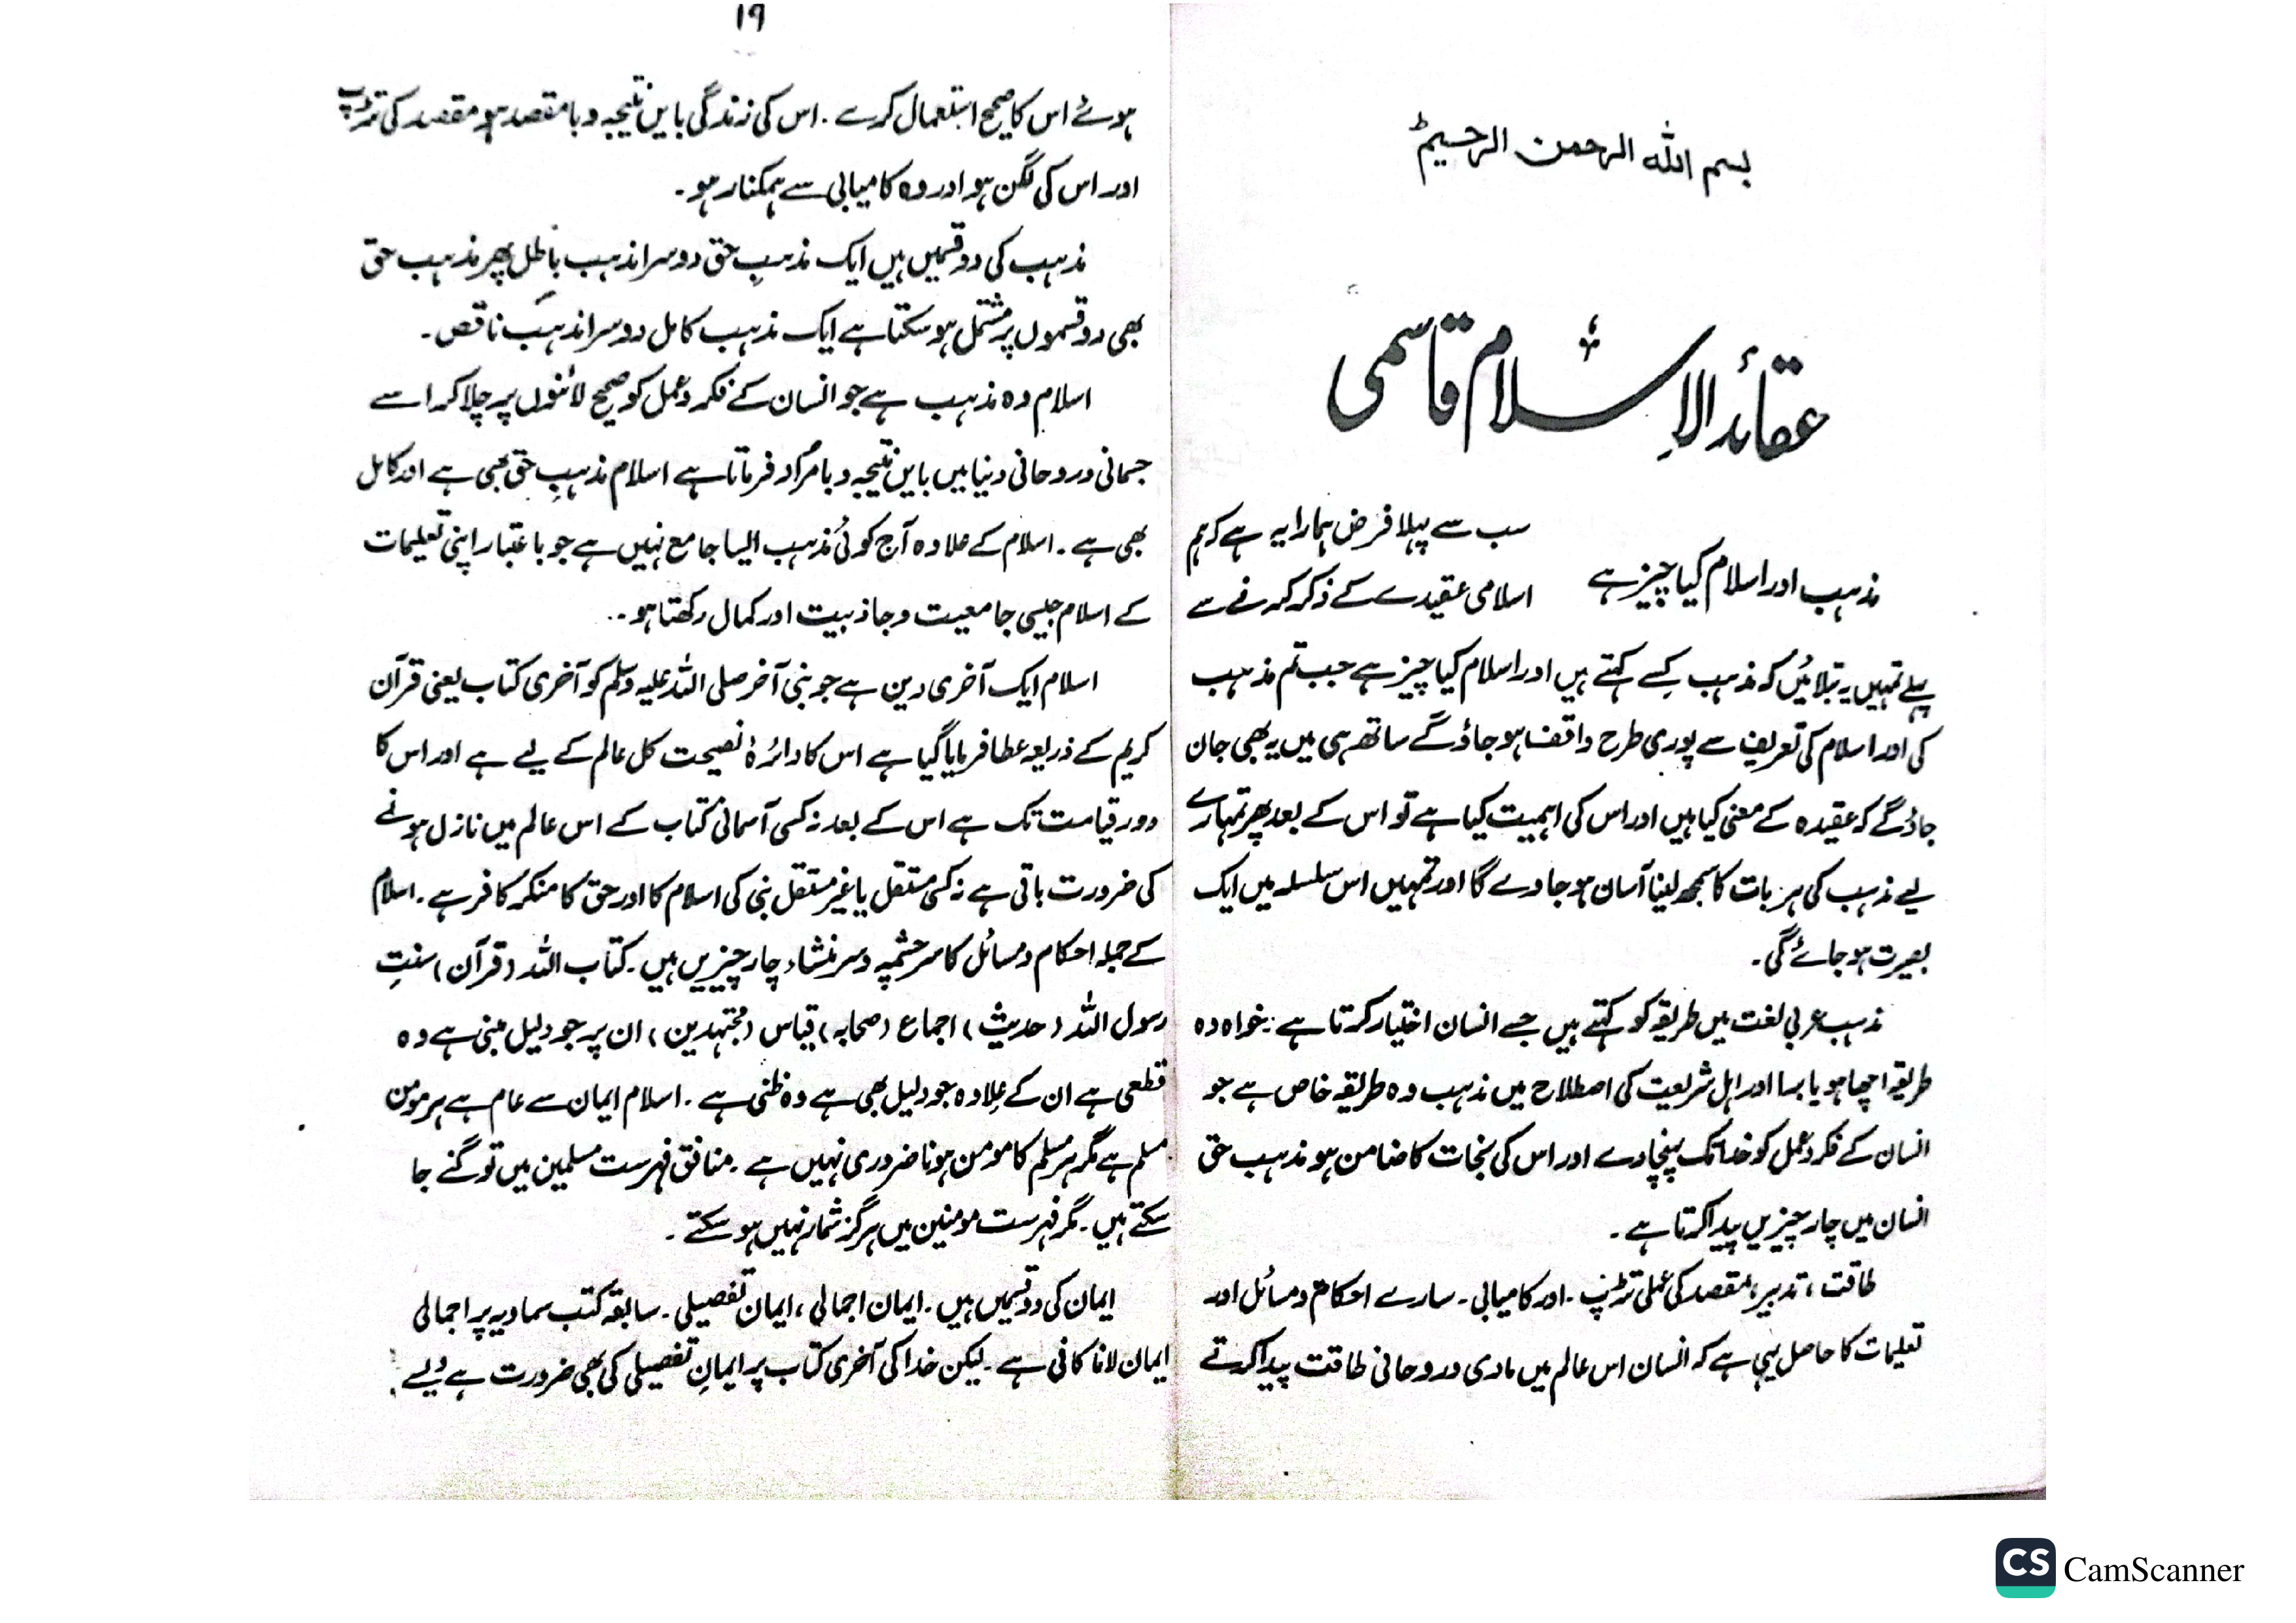 بسم الله الرحمن الرحیم
عقائد الاِسلام قاسمی
مذہب اور اسلام کیا چیز ہے
سب سے پہلا فرض ہمارا یہ ہے کہ ہم
اسلامی عقیدے کے ذکر کرنے سے
پہلے تمہیں یہ بتلائیں کہ مذہب کِسے کہتے ہیں اور اسلام کیا چیز ہے جب تم مذہب
کی اور اسلام کی تعریف سے پوری طرح واقف ہو جاؤ گے ساتھ ہی میں یہ بھی جان
جاؤ گے کہ عقیدہ کے معنی کیا ہیں اور اس کی اہمیت کیا ہے تو اس کے بعد پھر تمہارے
لیے مذہب کی ہر بات کا سمجھ لینا آسان ہو جاوے گا اور تمہیں اس سلسلہ میں ایک
بصیرت ہو جائے گی۔
مذہب عربی لغت میں طریقہ کو کہتے ہیں جسے انسان اختیار کرتا ہے۔ خواہ وہ
طریقہ اچھا ہو یا برا اور اہل شریعت کی اصطلاح میں مذہب وہ طریقہ خاص ہے جو
انسان کے فکر و عمل کو خدا تک پہنچا دے اور اس کی نجات کا ضامن ہو مذہب حق
انسان میں چار چیزیں پیدا کرتا ہے۔
طاقت، تدبیر، مقصد کی عملی تڑپ۔ اور کامیابی۔ سارے احکام و مسائل اور
تعلیمات کا حاصل یہی ہے کہ انسان اس عالم میں مادی و روحانی طاقت پیدا کرتے
۱۹
ہوئے اس کا صحیح استعمال کرے۔ اس کی زندگی بایں نتیجہ و بامقصد ہو مقصد کی تڑپ
اور اس کی لگن ہو اور وہ کامیابی سے ہمکنار ہو۔
مذہب کی دو قسمیں ہیں ایک مذہبِ حق دوسرا مذہب باطل پھر مذہب حق
بھی دو قسموں پر مشتمل ہو سکتا ہے ایک مذہب کامل دوسرا مذہب ناقص۔
اسلام وہ مذہب ہے جو انسان کے فکر و عمل کو صحیح لائنوں پر چلا کر اسے
جسمانی و روحانی دنیا میں بایں نتیجہ و بامراد فرماتا ہے اسلام مذہبِ حق بھی ہے اور کامل
بھی ہے۔ اسلام کے علاوہ آج کوئی مذہب ایسا جامع نہیں ہے جو باعتبار اپنی تعلیمات
کے اسلام جیسی جامعیت و جاذبیت اور کمال رکھتا ہو۔۔
اسلام ایک آخری دین ہے جو نبی آخر صلی اللہ علیہ وسلم کو آخری کتاب یعنی قرآن
کریم کے ذریعہ عطا فرمایا گیا ہے اس کا دائرۂ نصیحت کل عالم کے لیے ہے اور اس کا
دور قیامت تک ہے اس کے بعد نہ کسی آسمانی کتاب کے اس عالم میں نازل ہونے
کی ضرورت باقی ہے نہ کسی مستقل یا غیر مستقل نبی کی اسلام کا اور حق کا منکر کافر ہے۔ اسلام
کے جملہ احکام و مسائل کا سرچشمہ و سر منشاء چار چیزیں ہیں۔ کتاب اللہ (قرآن) سنتِ
رسول اللہ (حدیث) اجماع (صحابہ) قیاس (مجتہدین) ان پر جو دلیل مبنی ہے وہ
قطعی ہے ان کے علاوہ جو دلیل بھی ہے وہ ظنی ہے۔ اسلام ایمان سے عام ہے ہر مومن
مسلم ہے مگر ہر مسلم کا مومن ہونا ضروری نہیں ہے۔ منافق فہرست مسلمین میں تو گنے جا
سکتے ہیں۔ مگر فہرست مومنین میں ہرگز شمار نہیں ہو سکتے۔
ایمان کی دو قسمیں ہیں۔ ایمان اجمالی، ایمان تفصیلی۔ سابقہ کتب سماویہ پر اجمالی
ایمان لانا کافی ہے۔ لیکن خدا کی آخری کتاب پر ایمانِ تفصیلی کی بھی ضرورت ہے
CS CamScanner